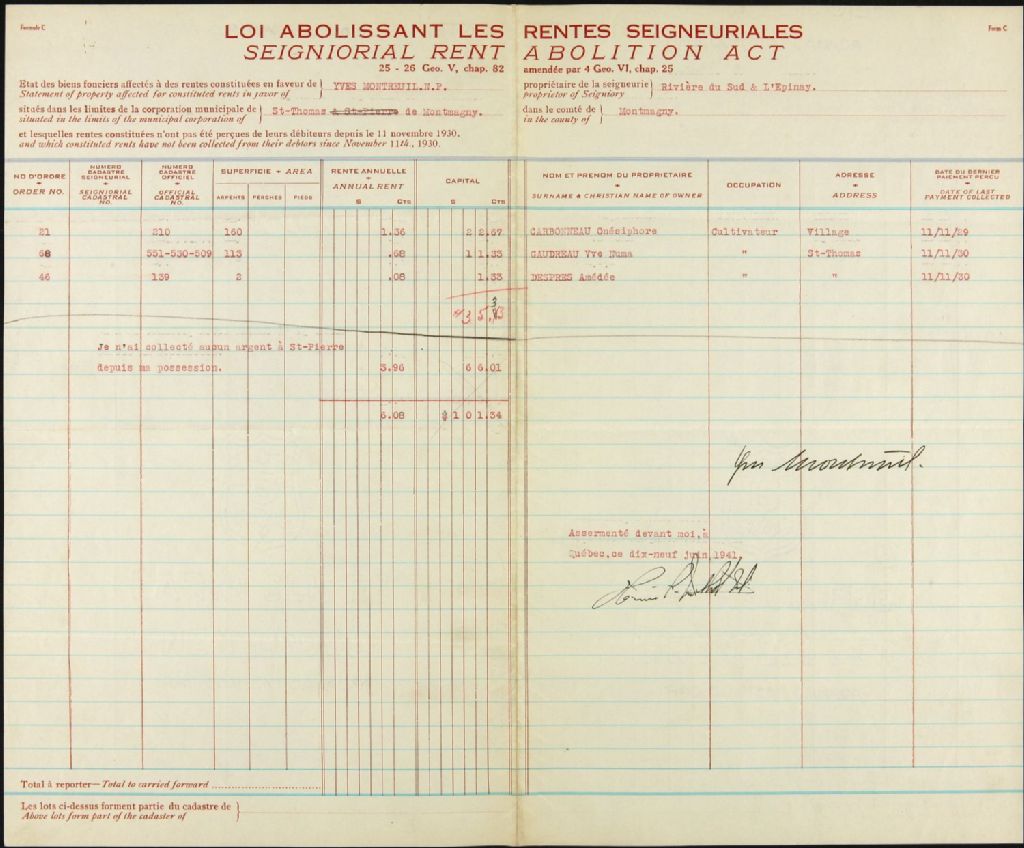 Formule C
Form C
LOI ABOLISSANT LES RENTES SEIGNEURIALES
SEIGNIORIAL RENT ABOLITION ACT
25 - 26 Geo. V, chap. 82 amendée par 4 Geo. VI, chap. 25
Etat des biens fonciers affectés à des rentes constituées en faveur de } YVES MONTREUIL.N.P. propriétaire de la seigneurie } Rivière du Sud & L'Epinay.
Statement of property affected for constituted rents in favor of proprietor of Seigniory
situés dans les limites de la corporation municipale de } St-Thomas & St-Pierre de Montmagny. dans le comté de } Montmagny.
situated in the limits of the municipal corporation of in the county of
et lesquelles rentes constituées n'ont pas été perçues de leurs débiteurs depuis le 11 novembre 1930.
and which constituted rents have not been collected from their debtors since November 11th, 1930.
NO D'ORDRE ORDER NO.
NUMERO CADASTRE SEIGNEURIAL SEIGNIORIAL CADASTRAL NO.
NUMERO CADASTRE OFFICIEL OFFICIAL CADASTRAL NO.
SUPERFICIE - AREA
ARPENTS PERCHES PIEDS
RENTE ANNUELLE ANNUAL RENT
$ CTS
CAPITAL
$ CTS
NOM ET PRENOM DU PROPRIETAIRE SURNAME & CHRISTIAN NAME OF OWNER
OCCUPATION
ADRESSE ADDRESS
DATE DU DERNIER PAIEMENT PERÇU DATE OF LAST PAYMENT COLLECTED
21 210 160 1.36 2 2.67 CARBONNEAU Onésiphore Cultivateur Village 11/11/29
68 551-530-509 113 .68 1 1.33 GAUDREAU Yve Numa " St-Thomas 11/11/30
46 139 2 .08 1.33 DESPRES Amédée " " 11/11/30
Je n'ai collecté aucun argent à St-Pierre
depuis ma possession. 3.96 6 6.01
6.08 $ 1 0 1.34
Yves Montreuil.
Assermenté devant moi,à
Québec,ce dix-neuf juin 1941.
Total à reporter—Total to carried forward
Les lots ci-dessus forment partie du cadastre de }
Above lots form part of the cadaster of